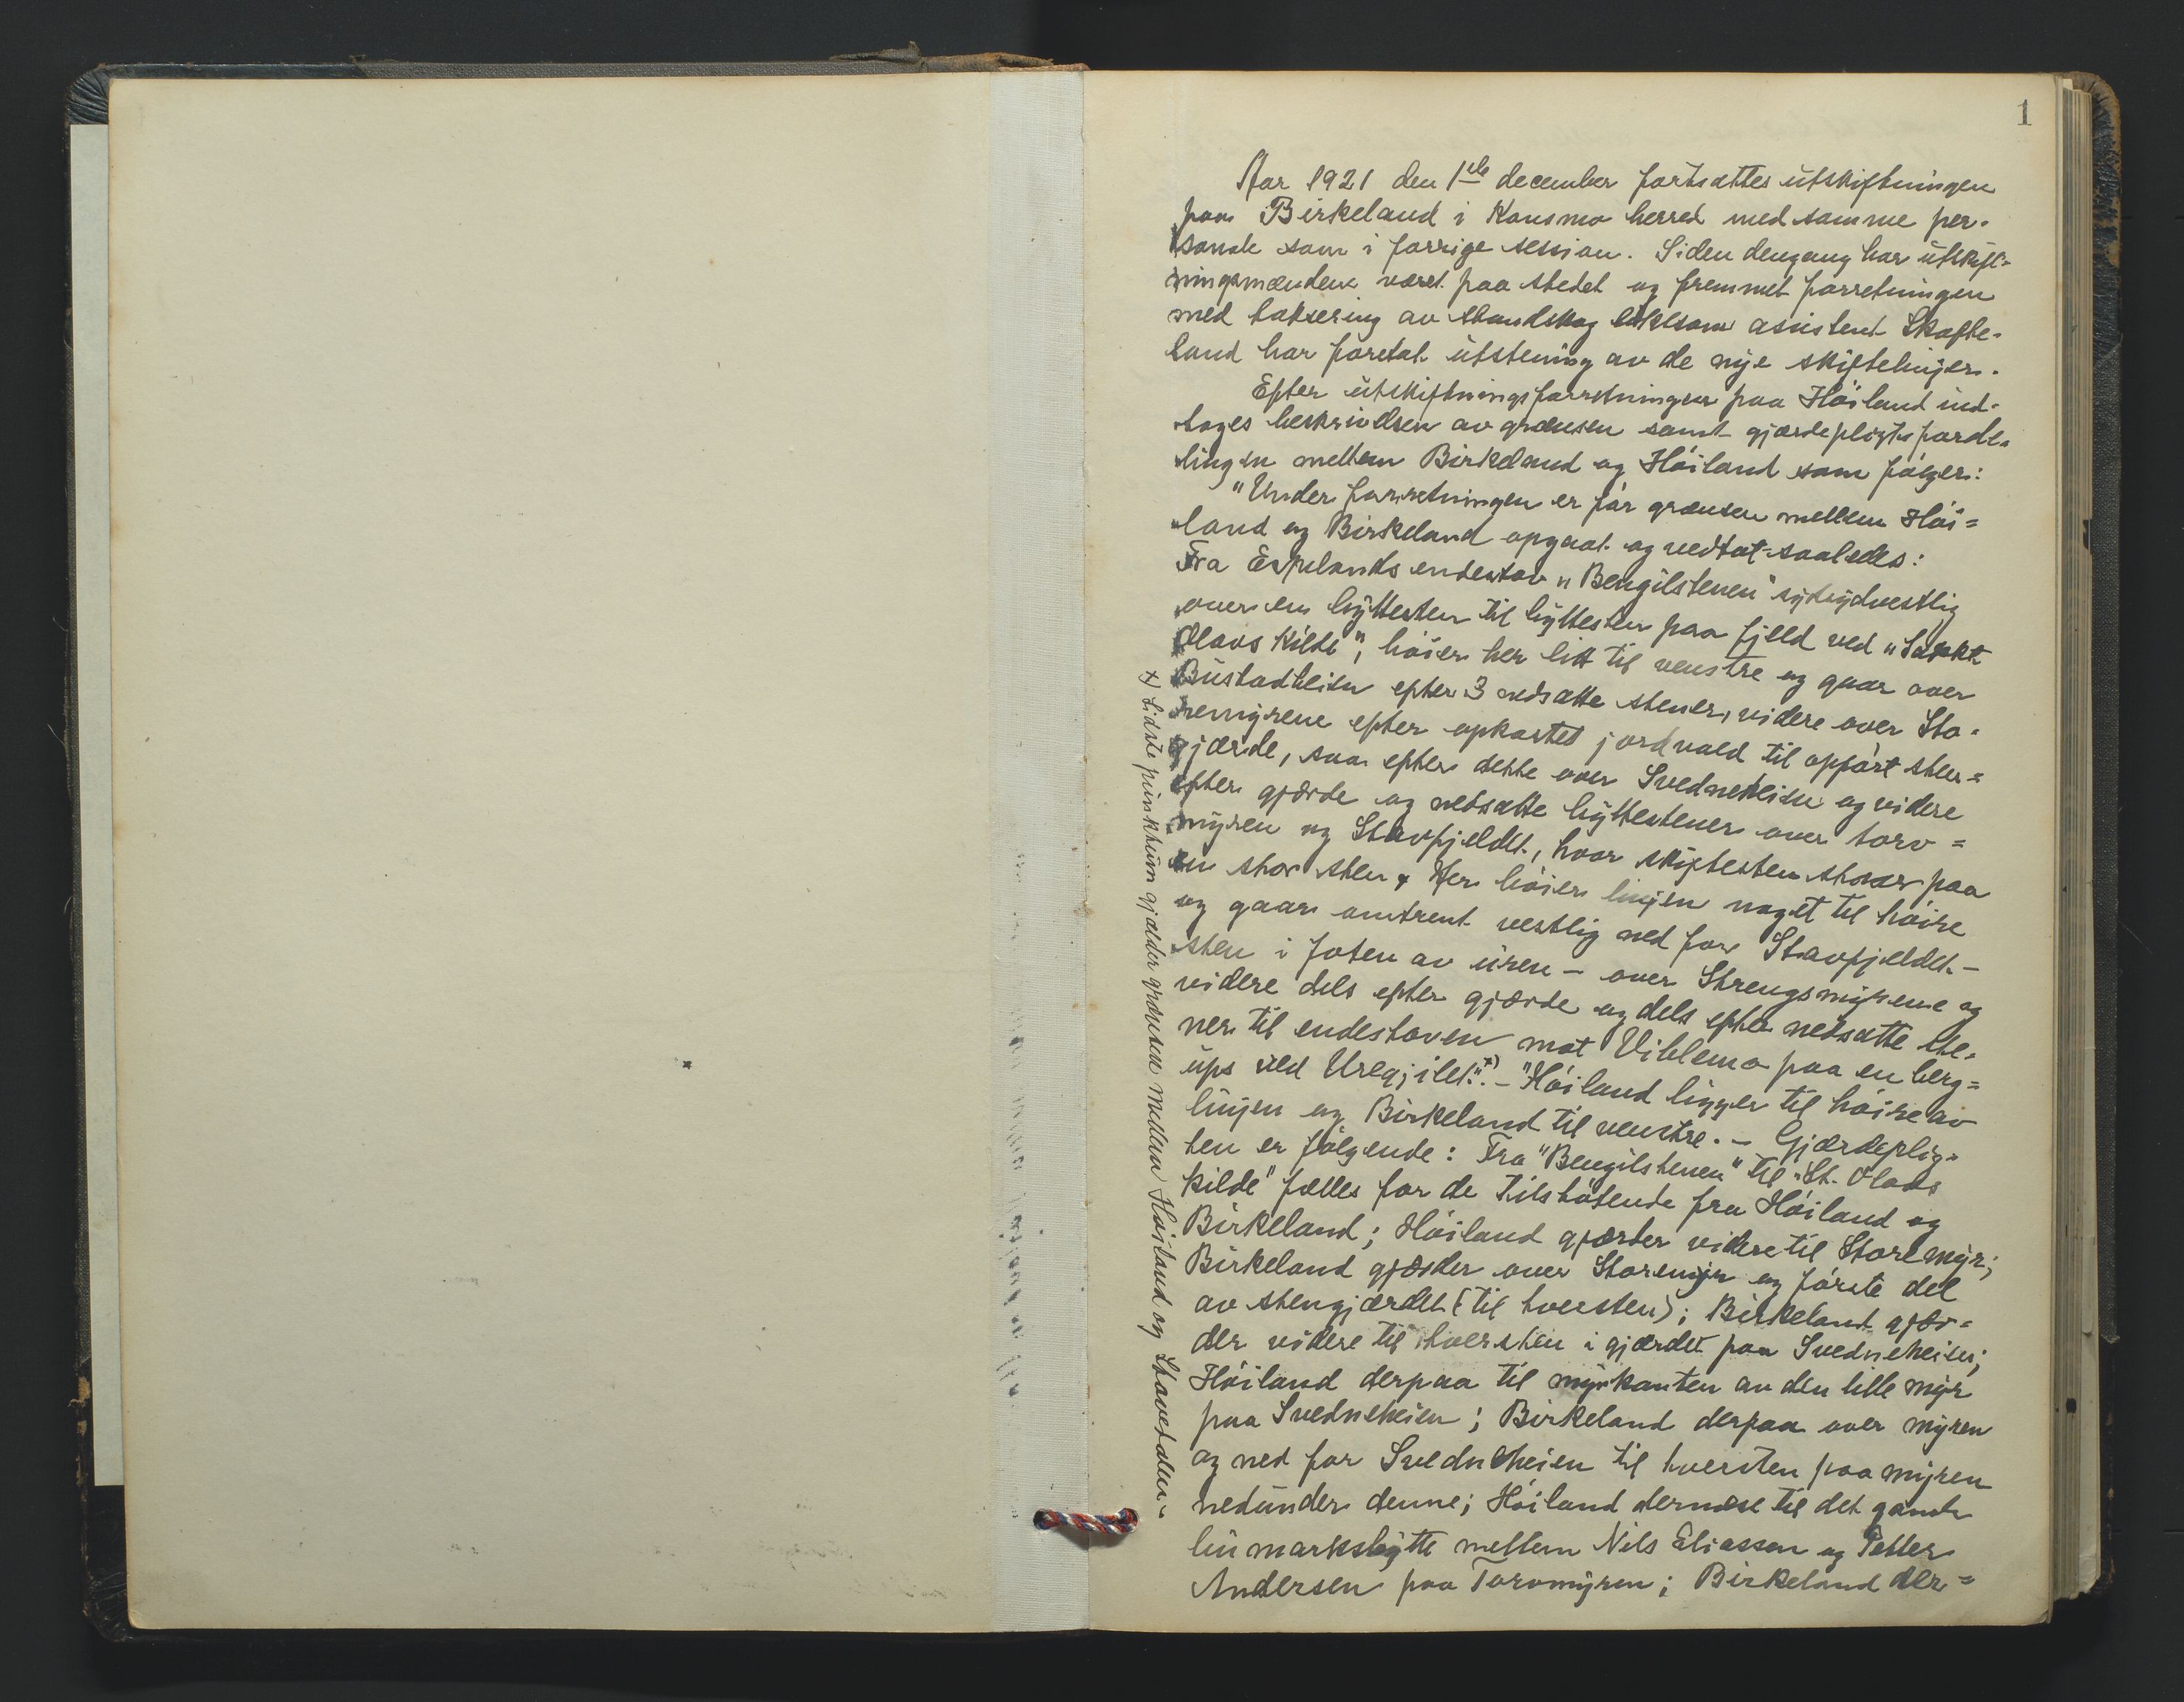 1
Aar 1921 den 1ste december fortsattes utskiftningen
paa Birkeland i Konsmo herred med samme per-
sonale som i forrige session. Siden dengang har utskift-
ningsmændene været paa stedet og fremmet forretningen
med taksering av standskog likesom assistent Skofte-
land har foretat utstening av de nye skiftelinjer.
Efter utskiftningsforretningen paa Höiland ind-
tages beskrivelsen av grænsen samt gjærdepligtsforde-
lingen mellem Birkeland og Höiland som følger:
"Under forretningen er før grænsen mellem Höi=
land og Birkeland opgaat og vedtat saaledes:
Fra Espelands endestav "Bengilstenen" sydsydvestlig
over en byttesten til byttesten paa fjeld ved "Sankt
Olavs Kilde", höier her litt til venstre og gaar over
Bustadheien efter 3 nedsatte stener, videre over Sto-
remyrene efter opkastet jordvold til opført sten=
gjærde, saa efter dette over Svedneheien og videre
efter gjærde og nedsatte byttestener over torv=
myren og Stavfjeldet, hvor skiftesten staar paa
en stor sten. Her höier linjen noget til höire
og gaar omtrent vestlig ned for Stavfjeldet –
sten i foten av uren – over Strengsmyrene og
videre dels efter gjærde og dels efter nedsatte ste-
ner til endestaven mot Viblemo paa en berg=
ups ved Uregjilet".x) – "Höiland ligger til höire av
linjen og Birkeland til venstre. – Gjærdeplig-
ten er følgende: Fra "Bengilstenen" til "St. Olavs
Kilde" fælles for de tilstøtende fra Höiland og
Birkeland; Höiland gjærder videre til Storemyr;
Birkeland gjærder over Storemyr og første del
av stengjærdet (til tversten); Birkeland gjær=
der videre til tversten i gjærdet paa Svedneheien;
Höiland derpaa til myrkanten av den lille myr
paa Svedneheien; Birkeland derpaa over myren
og ned for Svedneheien til tversten paa myren
nedunder denne; Höiland dernæst til det gamle
utmarksbytte mellem Nils Eliassen og Petter
Andersen paa Torvmyren; Birkeland der=
x) Sidste punktum gjælder grænsen mellem Höiland og Stavetdalen.